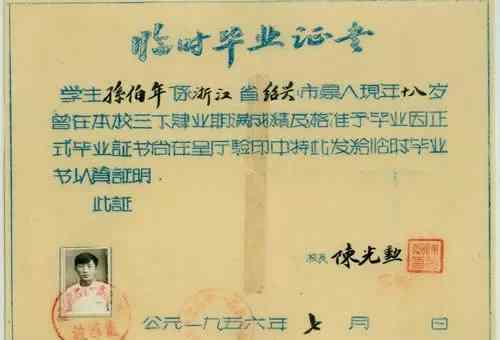 临时毕业证书
学生孫伯年係浙江省绍兴市県人現年十八岁
曾在本校三下肄业期满成績及格准予毕业因正
式毕业証书尚在呈厅驗印中特此发給临时毕业
书以資証明
此証
校長 陳光勲
公元一九五六年七月 日